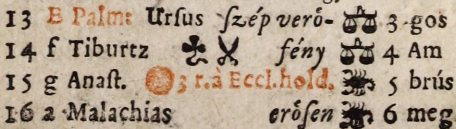 13 E Palm: Urſus ſzép verő- 3 gos
14 f Tiburtz fény 4 Am
15 g Anaſt. 3 r. à Eccl. hold. 5 brús
16 a Malachias erőſen 6 meg